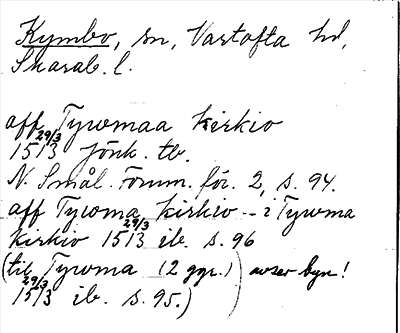 Kymbo, sn, Vartofta hd,
Skarab. l.
aff Tywmaa kirkio
29/3 1513 Jönk. tb.
N. Smål. Fornm. för. 2, s. 94.
aff Tywma kirkio - i Tywma
kirkio 29/3 1513 ib. s. 96
(til Tywma (2 ggr.) avser byn!
29/3 1513 ib. s. 95.)